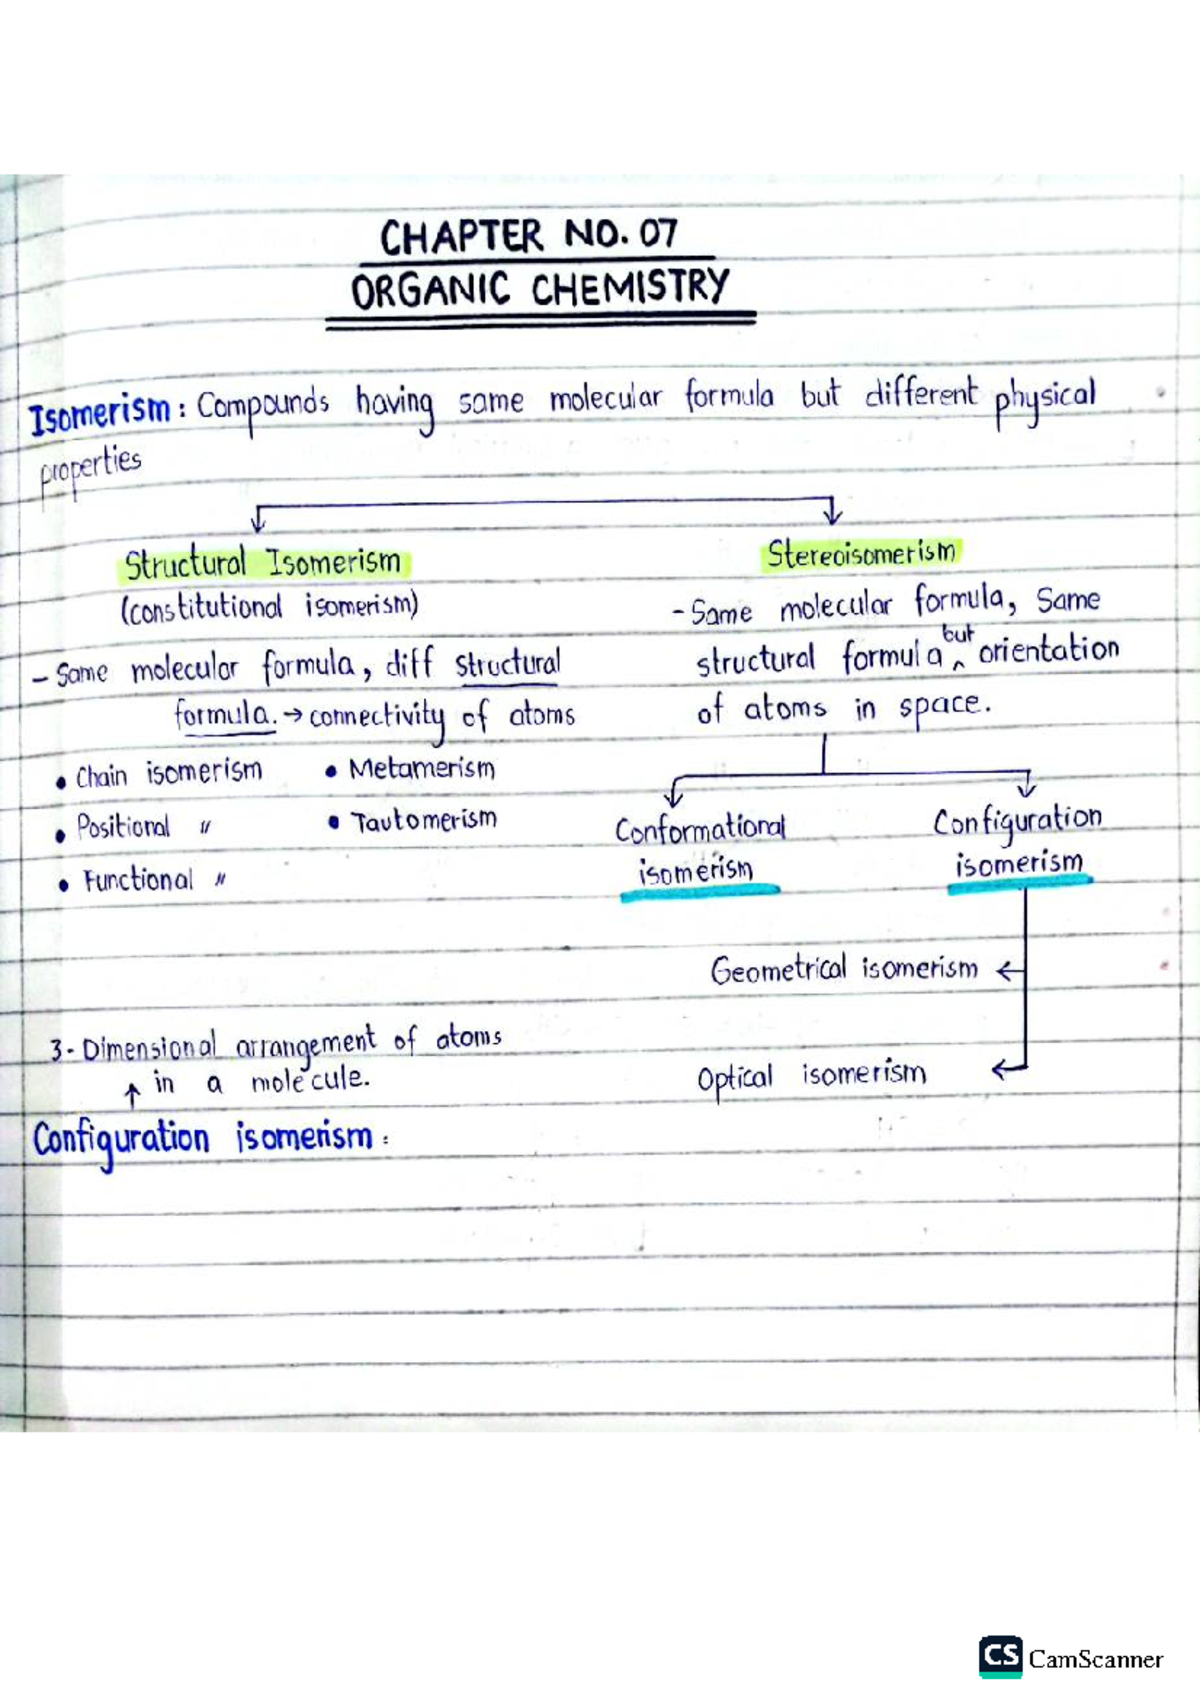 CHAPTER NO. 07
ORGANIC CHEMISTRY
Isomerism: Compounds having same molecular formula but different physical
properties
Structural Isomerism
(constitutional isomerism)
- Same molecular formula, diff structural
formula. → connectivity of atoms
• Chain isomerism
• Positional "
• Functional "
• Metamerism
• Tautomerism
Stereoisomerism
- Same molecular formula, Same
structural formula but orientation
of atoms in space.
Conformational
isomerism
Configuration
isomerism
Geometrical isomerism ←
Optical isomerism ←
3-Dimensional arrangement of atoms
↑ in a molecule.
Configuration isomerism:
CS CamScanner